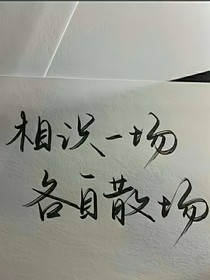 相识一场
各自散场